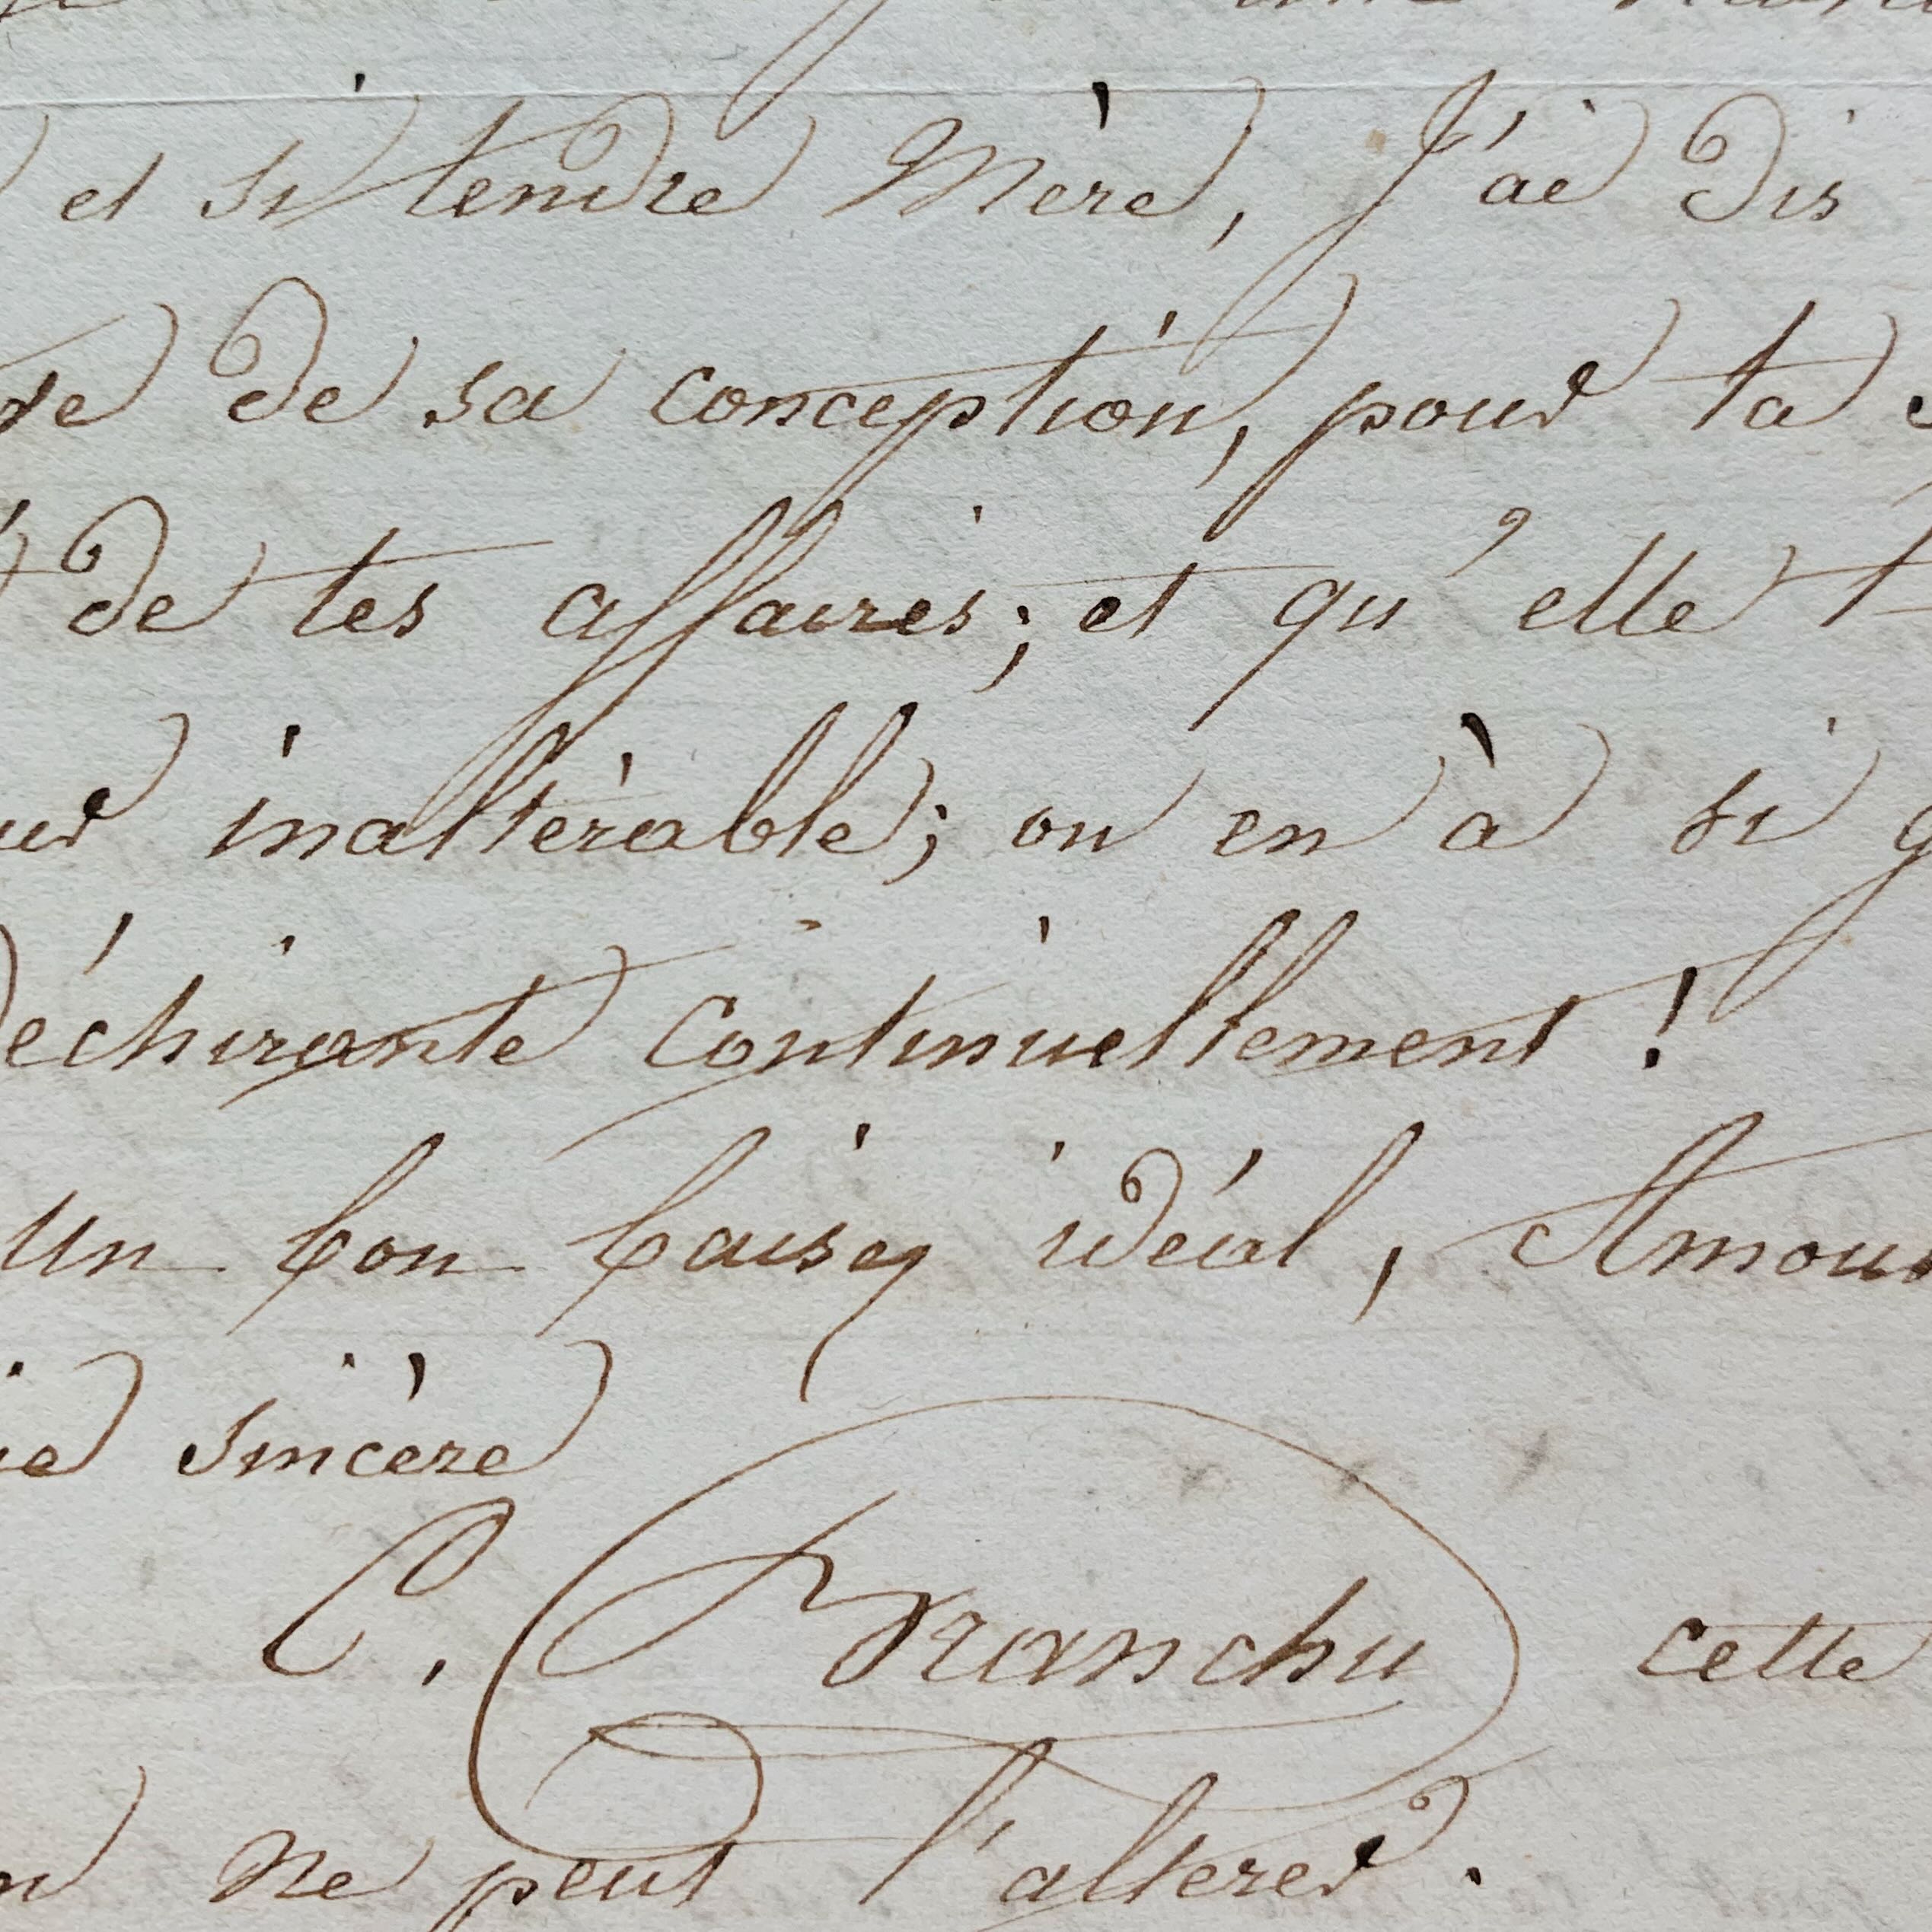 et si tendre Mère, J'ai dis
de sa conception, pour ta
de tes affaires; et qu'elle
inaltèrable; on en à si
déchirante continuellement !
un bon baiser idéal, Amour
sincère
C. Branchu cette
ne peut l'alterer.